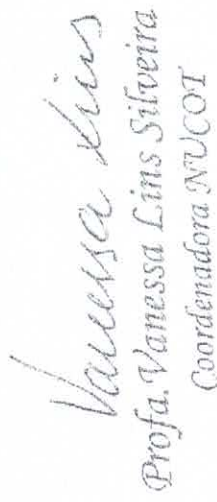 Vanessa Lins
Profa. Vanessa Lins Silveira
Coordenadora NUCOT